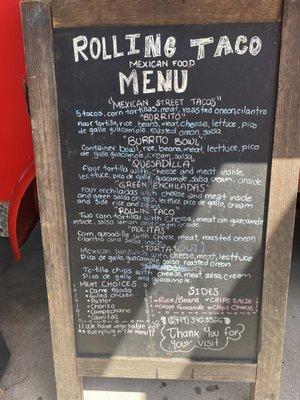 ROLLING TACO
MEXICAN FOOD
MENU
"MEXICAN STREET TACOS"
5 tacos, corn tortillas, meat, roasted onion, cilantro
"BURRITO"
flour tortilla, rice, beans, meat, cheese, lettuce, pico
de gallo guacamole, roasted onion, salsa.
"BURRITO BOWL"
Container bowl, rice, beans, meat, lettuce, pico de
gallo guacamole, cream, salsa,
"QUESADILLA"
flour tortilla with cheese and meat inside,
lettuce, pico de gallo, guacamole, salsa, cream, inside
"GREEN ENCHILADAS"
Four enchiladas with cheese and meat inside
and green salsa on top, lettuce, pico de gallo, cream
and side rice and
ROLLING TACO
Two corn tortillas with cheese, meat on guacamole
inside, salsa
"MULITAS"
Corn quesadilla with cheese, meat, roasted onion
cilantro and salsa
"TORTA (OUT)
Mexican sandwich with cheese, meat, lettuce
Pico de gallo, guacamole, salsa roasted onion
Tortilla chips with cheese, meat, salsa, cream
Pico de gallo
MEAT CHOICES
• Carne Asada
• Grilled chicken
• Pastor
• Chorizo
• Campechano
• Carnitas
We have vegetable
everything in the menu
SIDES
• Rice/Beans • CHIPS SALSA
• Chips Guacamole • Chips Cheese
Thank you for
your visit